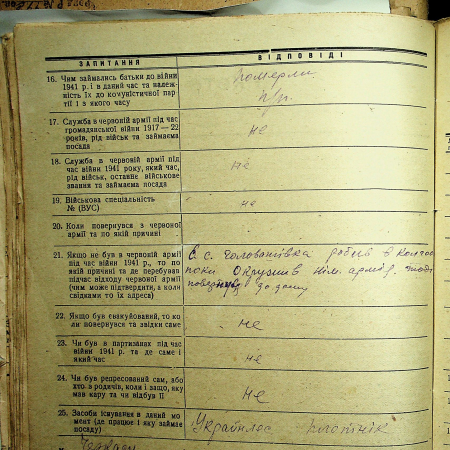 ЗАПИТАННЯ ВІДПОВІДІ
16. Чим займались батьки до війни
1941 р. і в даний час та належ-
ність їх до комуністичної пар
тії і з якого часу
померли
п/р.
17. Служба в червоній армії під час
громадянської війни 1917—22
років, рід військ та займаєма
посада
не
18. Служба в червоній армії під
час війни 1941 року, який час,
рід військ, останнє військове
звання та займаєма посада
не
19. Військова спеціальність
№ (ВУС)
не
20. Коли повернувся з червоної
армії та по якій причині
21. Якщо не був в червоній армії
під час війни 1941 р., то по
якій причині та де перебував
підчас відходу червоної армії
(чим може підтвердити, а коли
свідками то їх адреса)
В с. Головатівка робив в колгос
поки Окружив нім. армія, тоді
повернувся до дому
22. Якщо був евакуйований, то ко
ли повернувся та звідки саме
не
23. Чи був в партизанах під час
війни 1941 р. та де саме і
який час
не
24. Чи був репресований сам, або
хто з родичів, коли і защо, яку
мав кару та чи відбув її
не
25. Засоби існування в даний мо
мент (де працює і яку займає
посаду)
Украйнлес плотнік